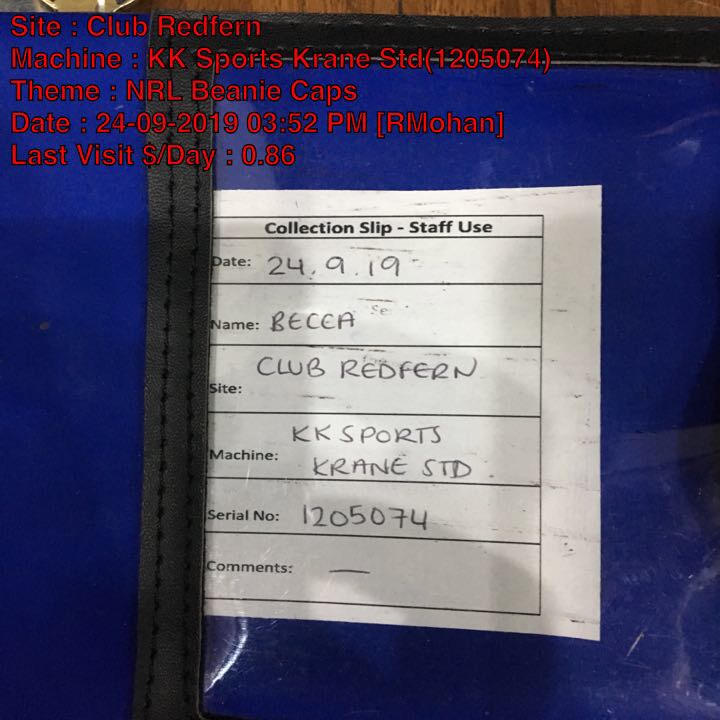 Site : Club Redfern
Machine : KK Sports Krane Std(1205074)
Theme : NRL Beanie Caps
Date : 24-09-2019 03:52 PM [RMohan]
Last Visit $/Day : 0.86
Collection Slip - Staff Use
Date: 24.9.19
Name: BECCA
CLUB REDFERN
Site:
KK SPORTS
Machine: KRANE STD.
Serial No: 1205074
Comments: —